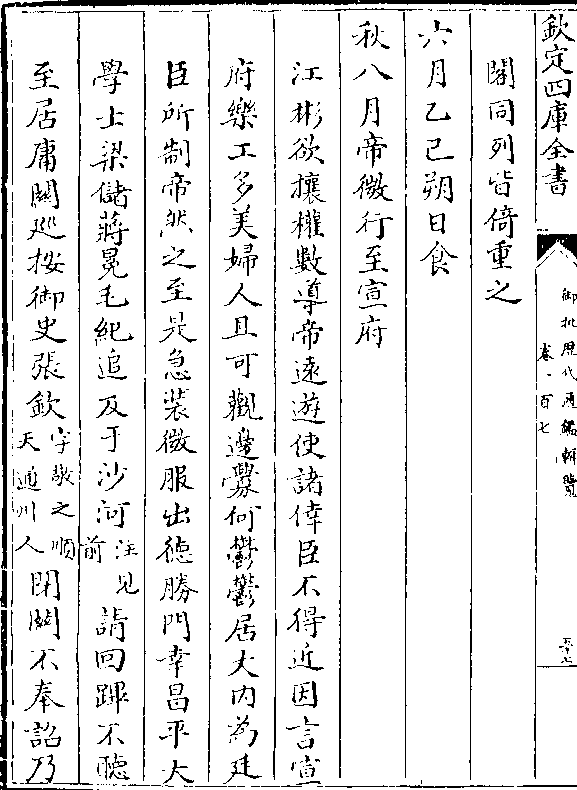 欽定四庫全書
御批歷代通鑑輯覽
卷一百七
五十七
閣同列皆倚重之
六月乙巳朔日食
秋八月帝微行至宣府
江彬欲攘權數導帝遠遊使諸倖臣不得近因言宣
府樂工多美婦人且可觀邊釁何鬱鬱居大内為廷
臣所制帝然之至是急裝微服出徳勝門幸昌平大
學士梁儲蔣冕毛紀追及于沙河注見前請回蹕不聽
至居庸闗廵按御史張欽字敬之順天通州人閉闗不奉詔乃